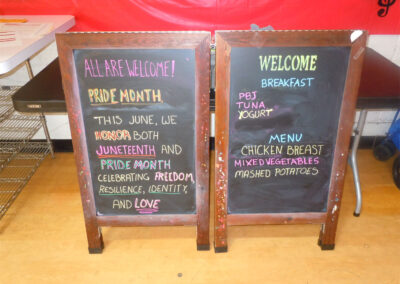 ALL ARE WELCOME!
PRIDE MONTH
THIS JUNE, WE
HONOR BOTH
JUNETEENTH AND
PRIDE MONTH
CELEBRATING FREEDOM,
RESILIENCE, IDENTITY,
AND LOVE
WELCOME
BREAKFAST
PBJ
TUNA
YOGURT
MENU
CHICKEN BREAST
MIXED VEGETABLES
MASHED POTATOES